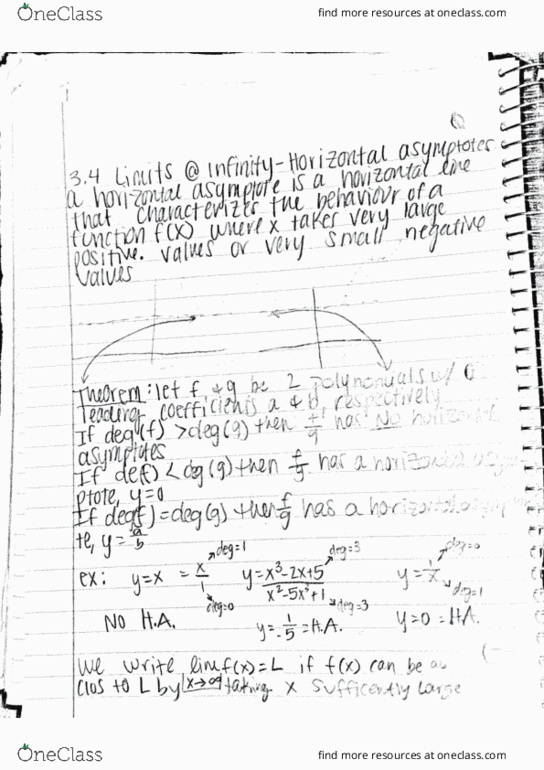 OneClass find more resources at oneclass.com
3.4 Limits @ Infinity-Horizontal asymptotes
a horizontal asymptote is a horizontal line
that characterizes the behaviour of a
function f(x) where x takes very large
positive. values or very small negative
values
Theorem: let f & g be 2 polynomials w/
leading coefficients a & b respectively
If deg(f) > deg(g) then f/g has NO horizont
asymptotes
If def(f) < deg(g) then f/g has a horizontal asym-
ptote, y=0
If deg(f) = deg(g) then f/g has a horizontal asympto
te, y = a/b
ex: y=x = x/1 deg=1 deg=0 y = x³-2x+5/x²-5x³+1 deg=3 deg=3 y = 1/x deg=0 deg=1
NO H.A. y = -1/5 = H.A. y=0 = H.A.
We write lim f(x) = L if f(x) can be
clos to L by x→∞ taking x sufficently large
OneClass find more resources at oneclass.com